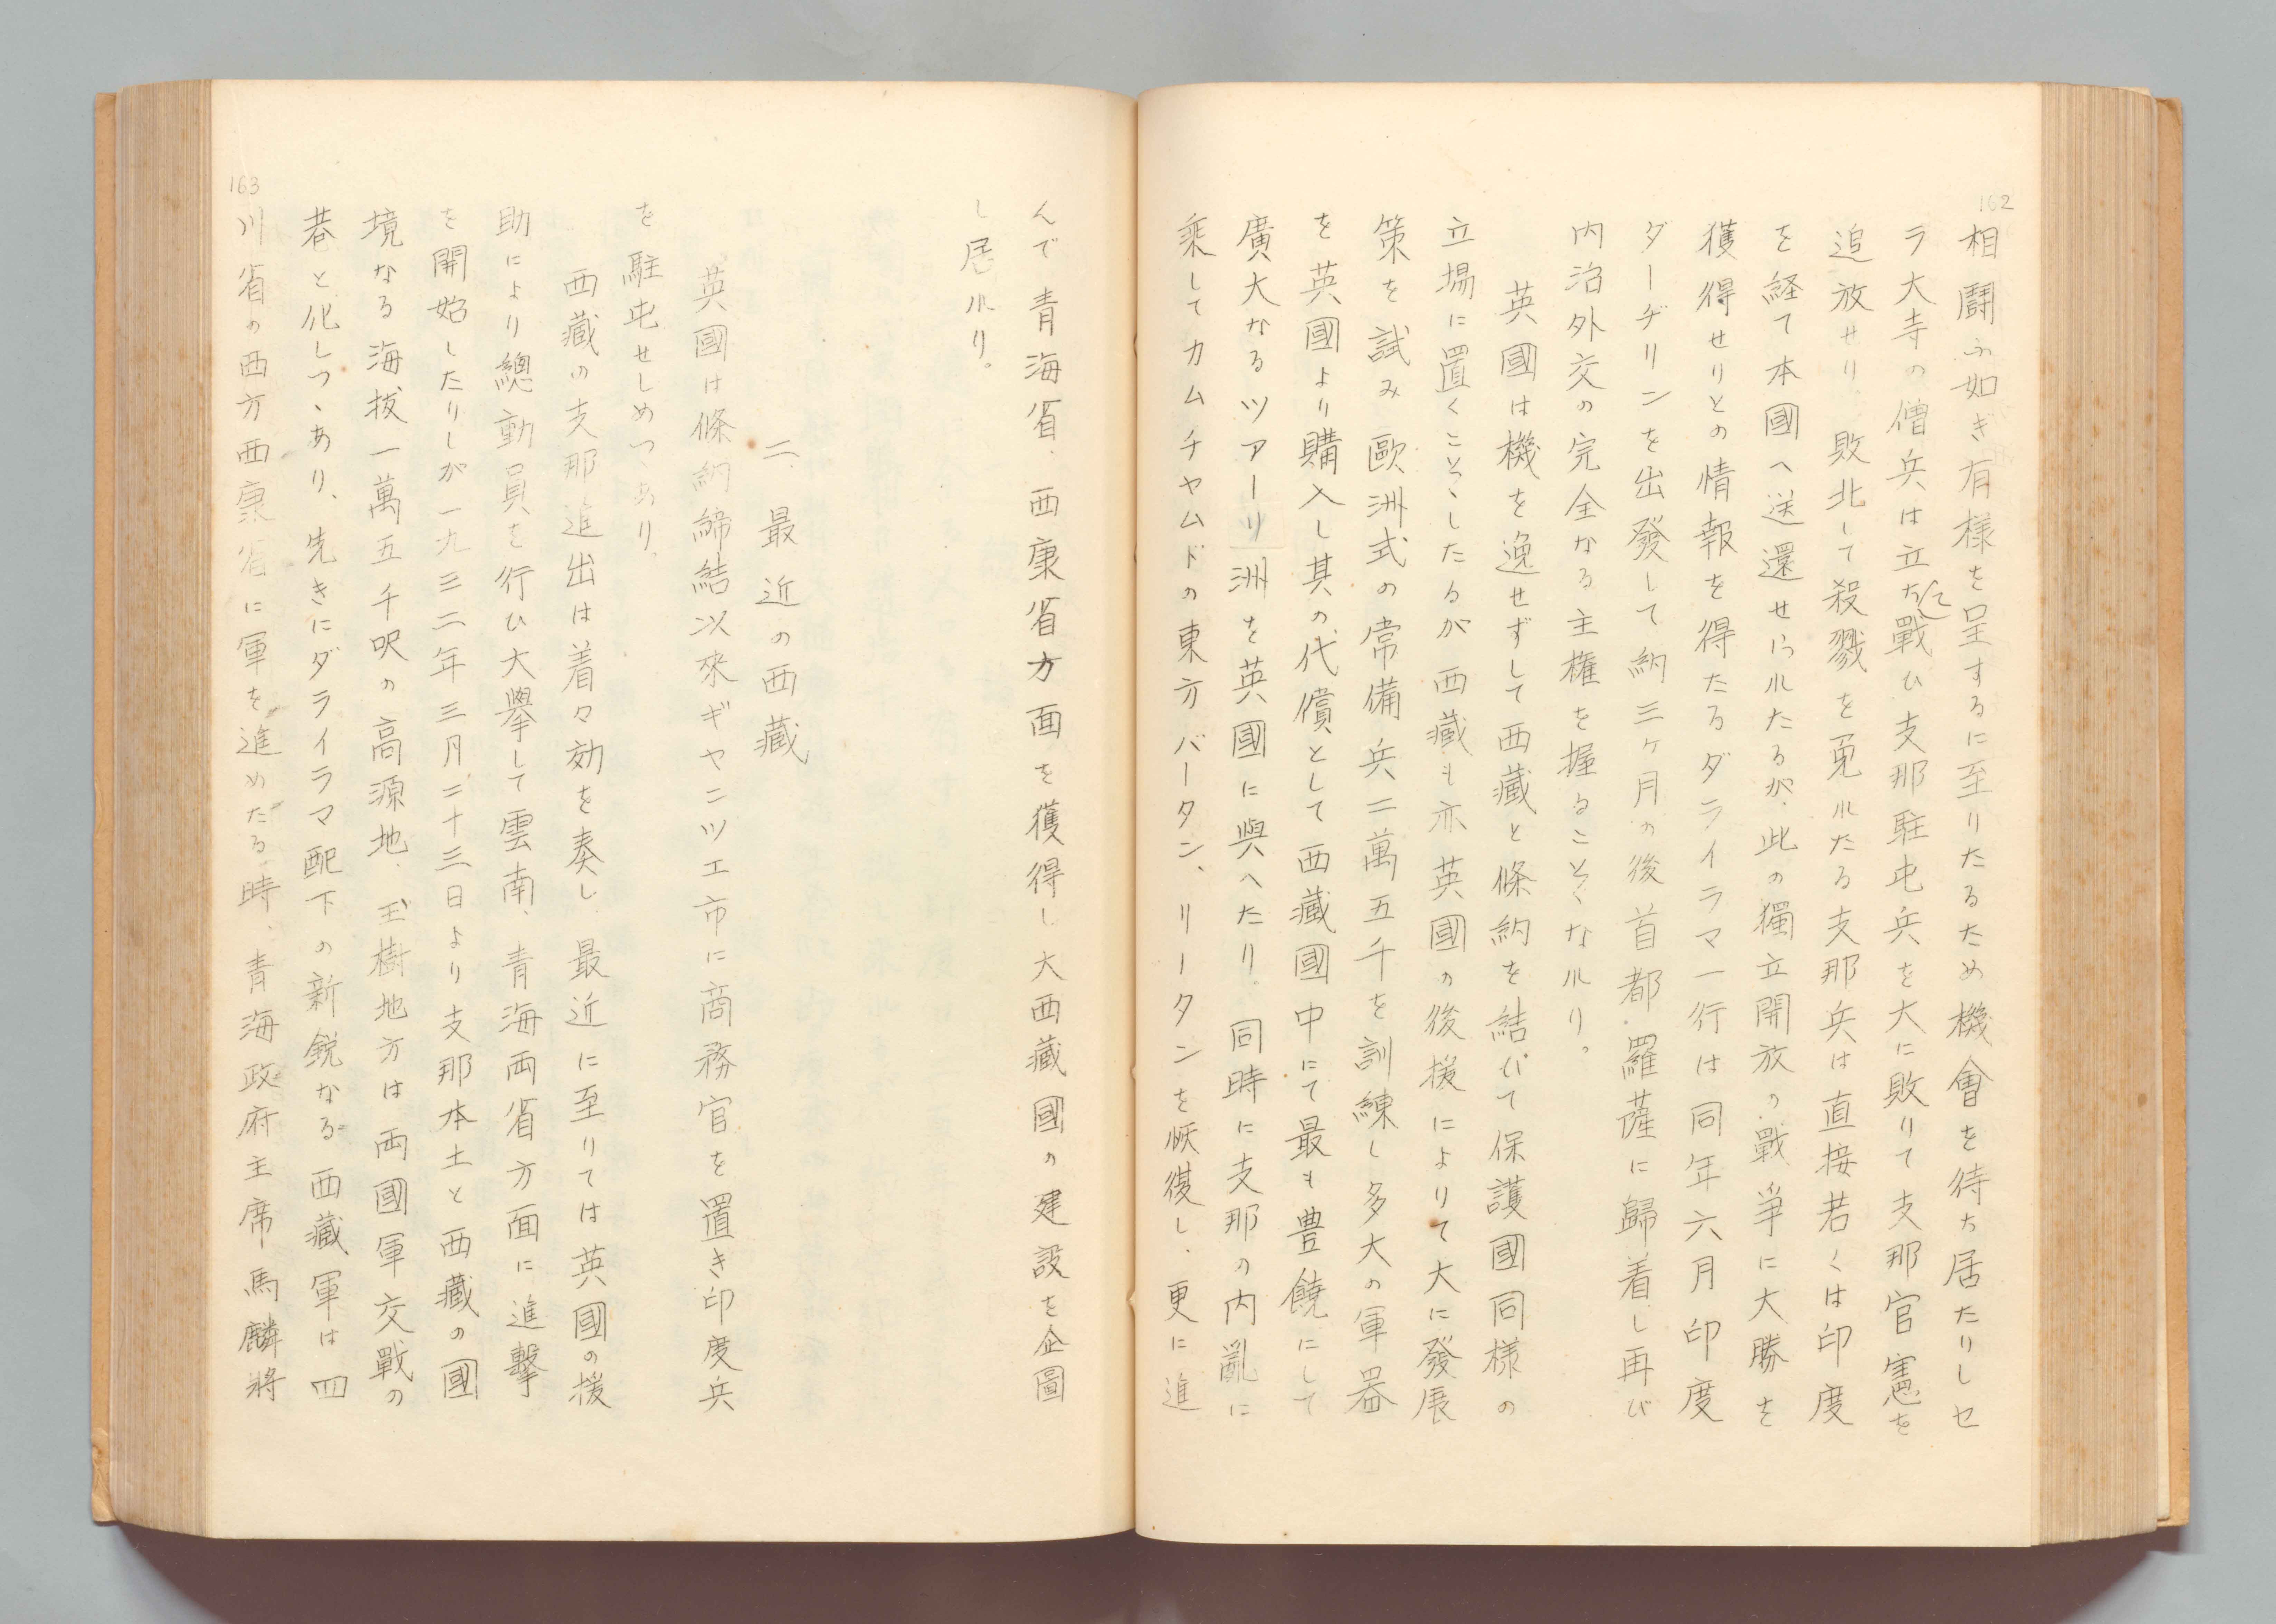 162
相闘ふ如き有様を呈するに至りたるため機會を待ち居たりしセ
ラ大寺の僧兵は立ちて戰ひ支那駐屯兵を大に敗りて支那官憲を
追放せり、敗北して殺戮を免れたる支那兵は直接若くは印度
を経て本國へ送還せられたるが、此の獨立開放の戰爭に大勝を
獲得せりとの情報を得たるダライラマ一行は同年六月印度
ダーヂリンを出發して約三ヶ月の後首都羅薩に歸着し再び
内治外交の完全なる主権を握ることゝなれり。
英國は機を逸せずして西藏と條約を結びて保護國同様の
立場に置くことゝしたるが西藏も亦英國の後援によりて大に發展
策を試み歐洲式の常備兵二萬五千を訓練し多大の軍器
を英國より購入し其の代償として西藏國中にて最も豊饒にして
廣大なるツアーリ洲を英國に與へたり、同時に支那の内亂に
乘してカムチヤムドの東方バータン、リータンを恢復し、更に進
んで青海省、西康省方面を獲得し大西藏國の建設を企圖
し居れり。
二、最近の西藏
英國は條約締結以來ギヤンツエ市に商務官を置き印度兵
を駐屯せしめつゝあり。
西藏の支那進出は着々効を奏し最近に至りては英國の援
助により總動員を行ひ大擧して雲南、青海両省方面に進擊
を開始したりしが一九三二年三月二十三日より支那本土と西藏の國
境なる海抜一萬五千呎の高源地、玉樹地方は両國軍交戰の
巷と化しつゝあり、先きにダライラマ配下の新鋭なる西藏軍は四
163
川省の西方西康省に軍を進めたる時、青海政府主席馬麟將